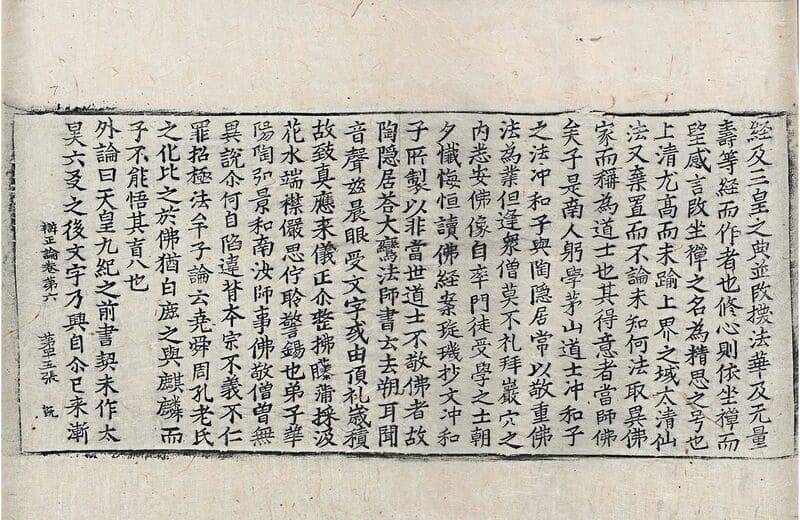 經及三皇之典並改換法華及无量
壽等經而作者也修心則依坐禪而
望感言改坐禪之名為精思之号也
上清尤高而未踰上界之域太清仙
法又棄置而不論未知何法取異佛
家而稱為道士也其得意者當師佛
矣子是南人躬學茅山道士冲和子
之法冲和子與陶隱居常以敬重佛
法為業但逢衆僧莫不礼拜巖穴之
内悉安佛像自率門徒受學之士朝
夕懺悔恒讀佛經案琁璣抄文冲和
子所製以非當世道士不敬佛者故
陶隱居荅大鸞法師書云去朔耳聞
音聲兹晨眼受文字或由頂礼歲積
故致真應来儀正尒整拂藤蒲採汲
花水端襟儼思佇聆警錫也弟子華
陽陶弘景和南汝師事佛敬僧曽無
異說尒何自陷違背夲宗不義不仁
罪招極法牟子論云堯舜周孔老氏
之化比之於佛猶白鹿之與麒麟而
子不能悟其盲八也
外論曰天皇九紀之前書契未作太
昊六爻之後文字乃興自尒已来漸
辯正論卷第六 第罕五張 旣